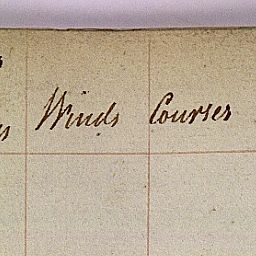 Winds Courses